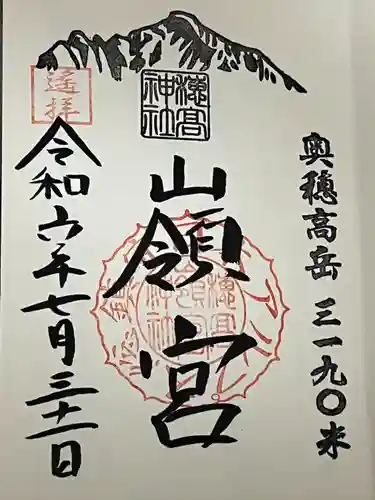 奥穂高岳 三一九〇米
穂高神社
山嶺宮
遙拝
令和六年七月三十一日